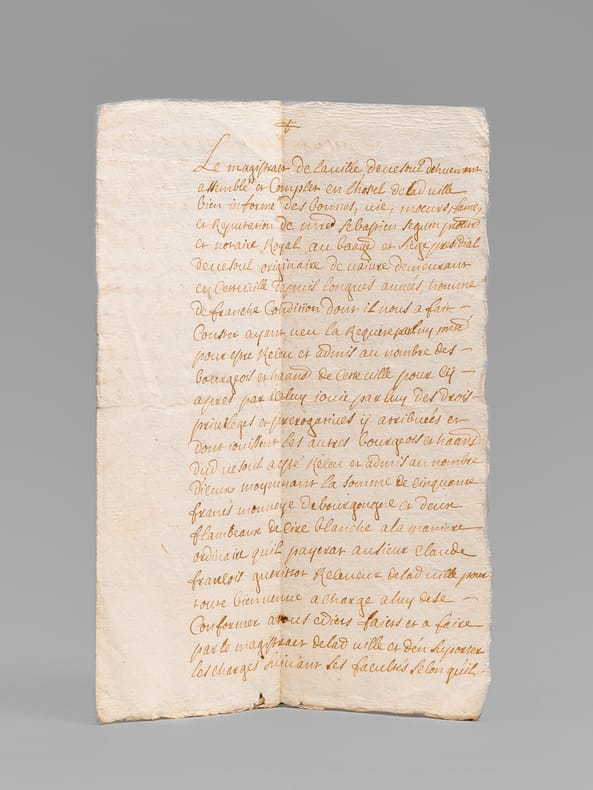 Le magistract de la ville de vesoul deheument
assemblé et Complet en l'hostel de lad ville
bien informé des bonnes, vie, moeurs, fame,
et Reputation de mre Sebastien Seguin
et notaire Royal au baage et siege presidial
de vesoul originaire de demeurant
en Cette ville depuis longues années homme
de franche Condition dont il nous a fait –
Conster ayant veu la Requeste par luy
pour estre Receu et admis au nombre des –
bourgeois et haans de Cette ville pour Cy –
apres par iceluy iouir par luy des drois –
privileges et prerogatives y attribuées et
dont iouissent les autres bourgeois et haans
dud vesoul a esté Receu et admis au nombre
d'iceux moyennant la somme de Cinquante
francs monnoye de bourgougne et deux
flambeaux de Cire blanche a la maniere
ordinaire qu'il payerat au sieur Claude
françois Receveur de lad ville pour
toute bienvenue a charge a luy de se –
Conformer a tous edicts faicts et a faire
par le magistract de lad ville et d'en suporter
les charges suivant ses facultés selon qu'il –